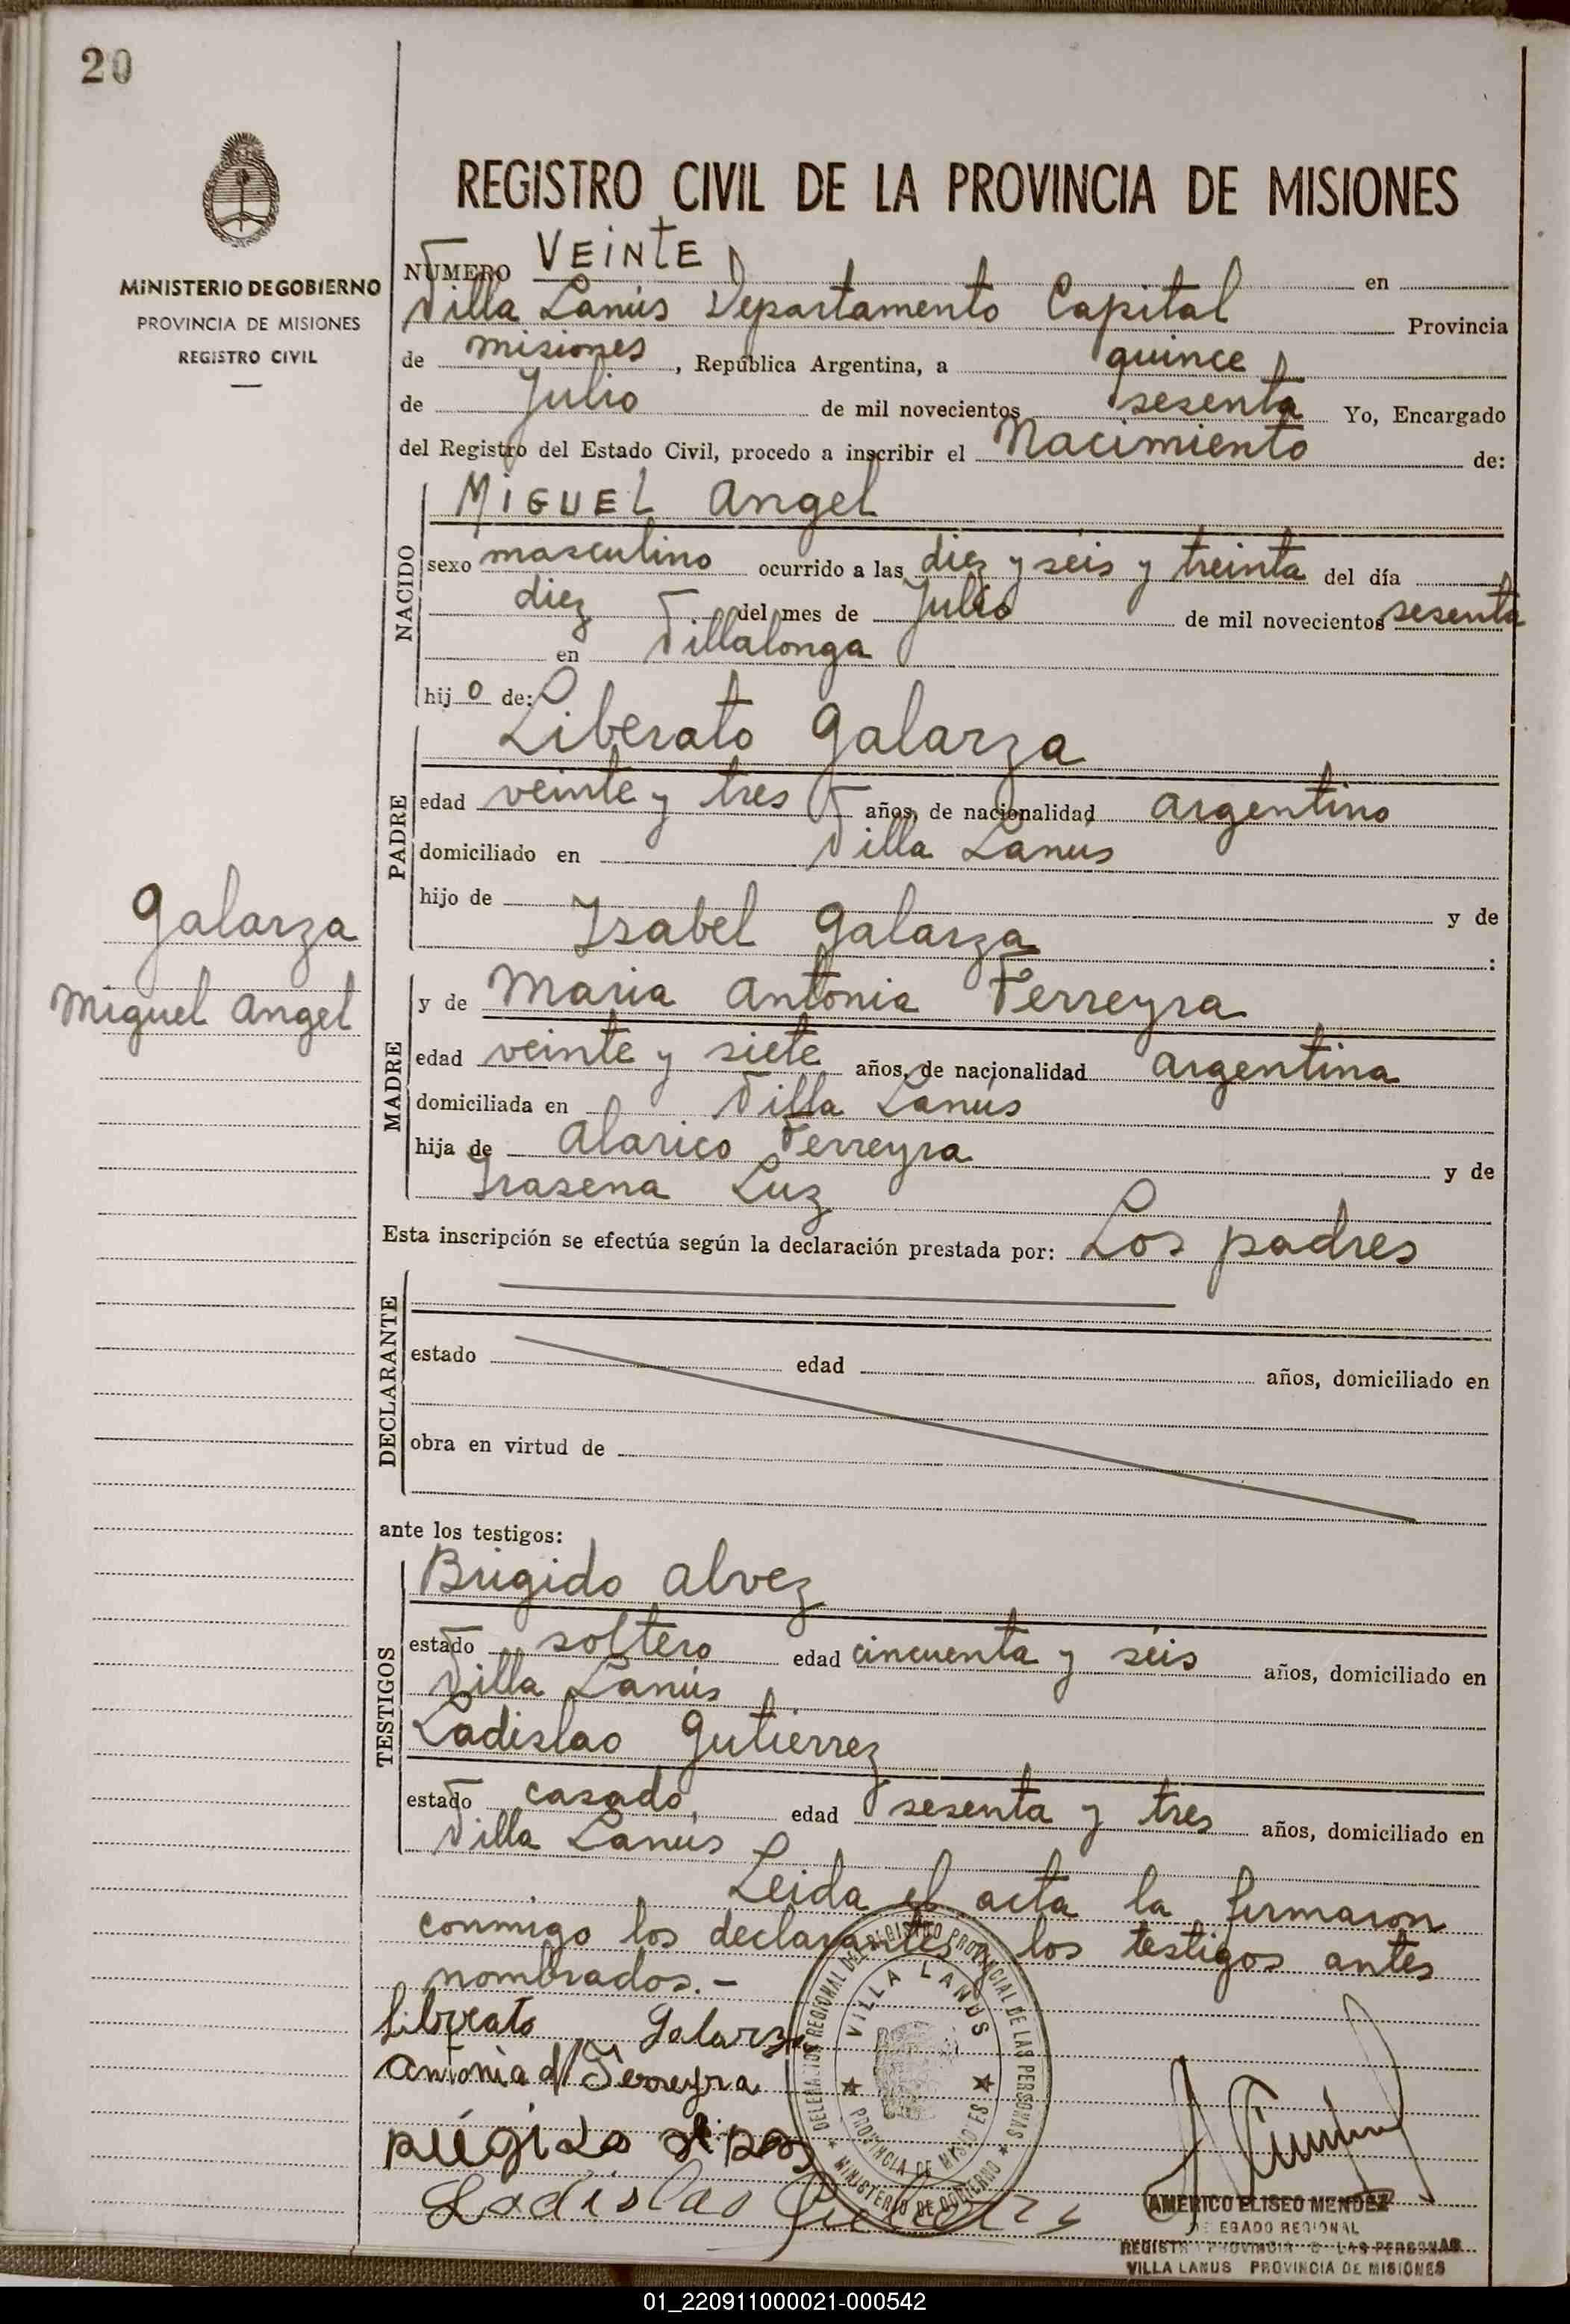 20
MINISTERIO DE GOBIERNO
PROVINCIA DE MISIONES
REGISTRO CIVIL
REGISTRO CIVIL DE LA PROVINCIA DE MISIONES
NUMERO VEINTE en
Villa Lanús Departamento Capital Provincia
de misiones, República Argentina, a quince
de Julio de mil novecientos sesenta Yo, Encargado
del Registro del Estado Civil, procedo a inscribir el Nacimiento de:
NACIDO
MIGUEL Angel
sexo masculino ocurrido a las diez y séis y treinta del día
diez del mes de Julio de mil novecientos sesenta
en Villalonga
hijo de:
PADRE
Liberato Galarza
edad veinte y tres años, de nacionalidad argentino
domiciliado en Villa Lanús
hijo de y de
Isabel Galarza :
Galarza
Miguel Angel
MADRE
y de Maria Antonia Ferreyra
edad veinte y siete años, de nacionalidad argentina
domiciliada en Villa Lanús
hija de Alarico Ferreyra y de
Irasena Luz
Esta inscripción se efectúa según la declaración prestada por: Los padres
DECLARANTE
estado edad años, domiciliado en
obra en virtud de
ante los testigos:
TESTIGOS
Brigido Alvez
estado soltero edad cincuenta y séis años, domiciliado en
Villa Lanús
Ladislao Gutierrez
estado casado edad sesenta y tres años, domiciliado en
Villa Lanús
Leida el acta la firmaron
conmigo los declarantes y los testigos antes
nombrados.-
Librato Galarza
Antonia d/ Ferreyra
Ladislao
DELEGACION REGIONAL DEL REGISTRO PROVINCIAL DE LAS PERSONAS
VILLA LANUS
PROVINCIA DE MISIONES
MINISTERIO DE GOBIERNO
AMERICO ELISEO MENDEZ
DELEGADO REGIONAL
REGISTRO PROVINCIAL DE LAS PERSONAS
VILLA LANUS PROVINCIA DE MISIONES
01_220911000021-000542